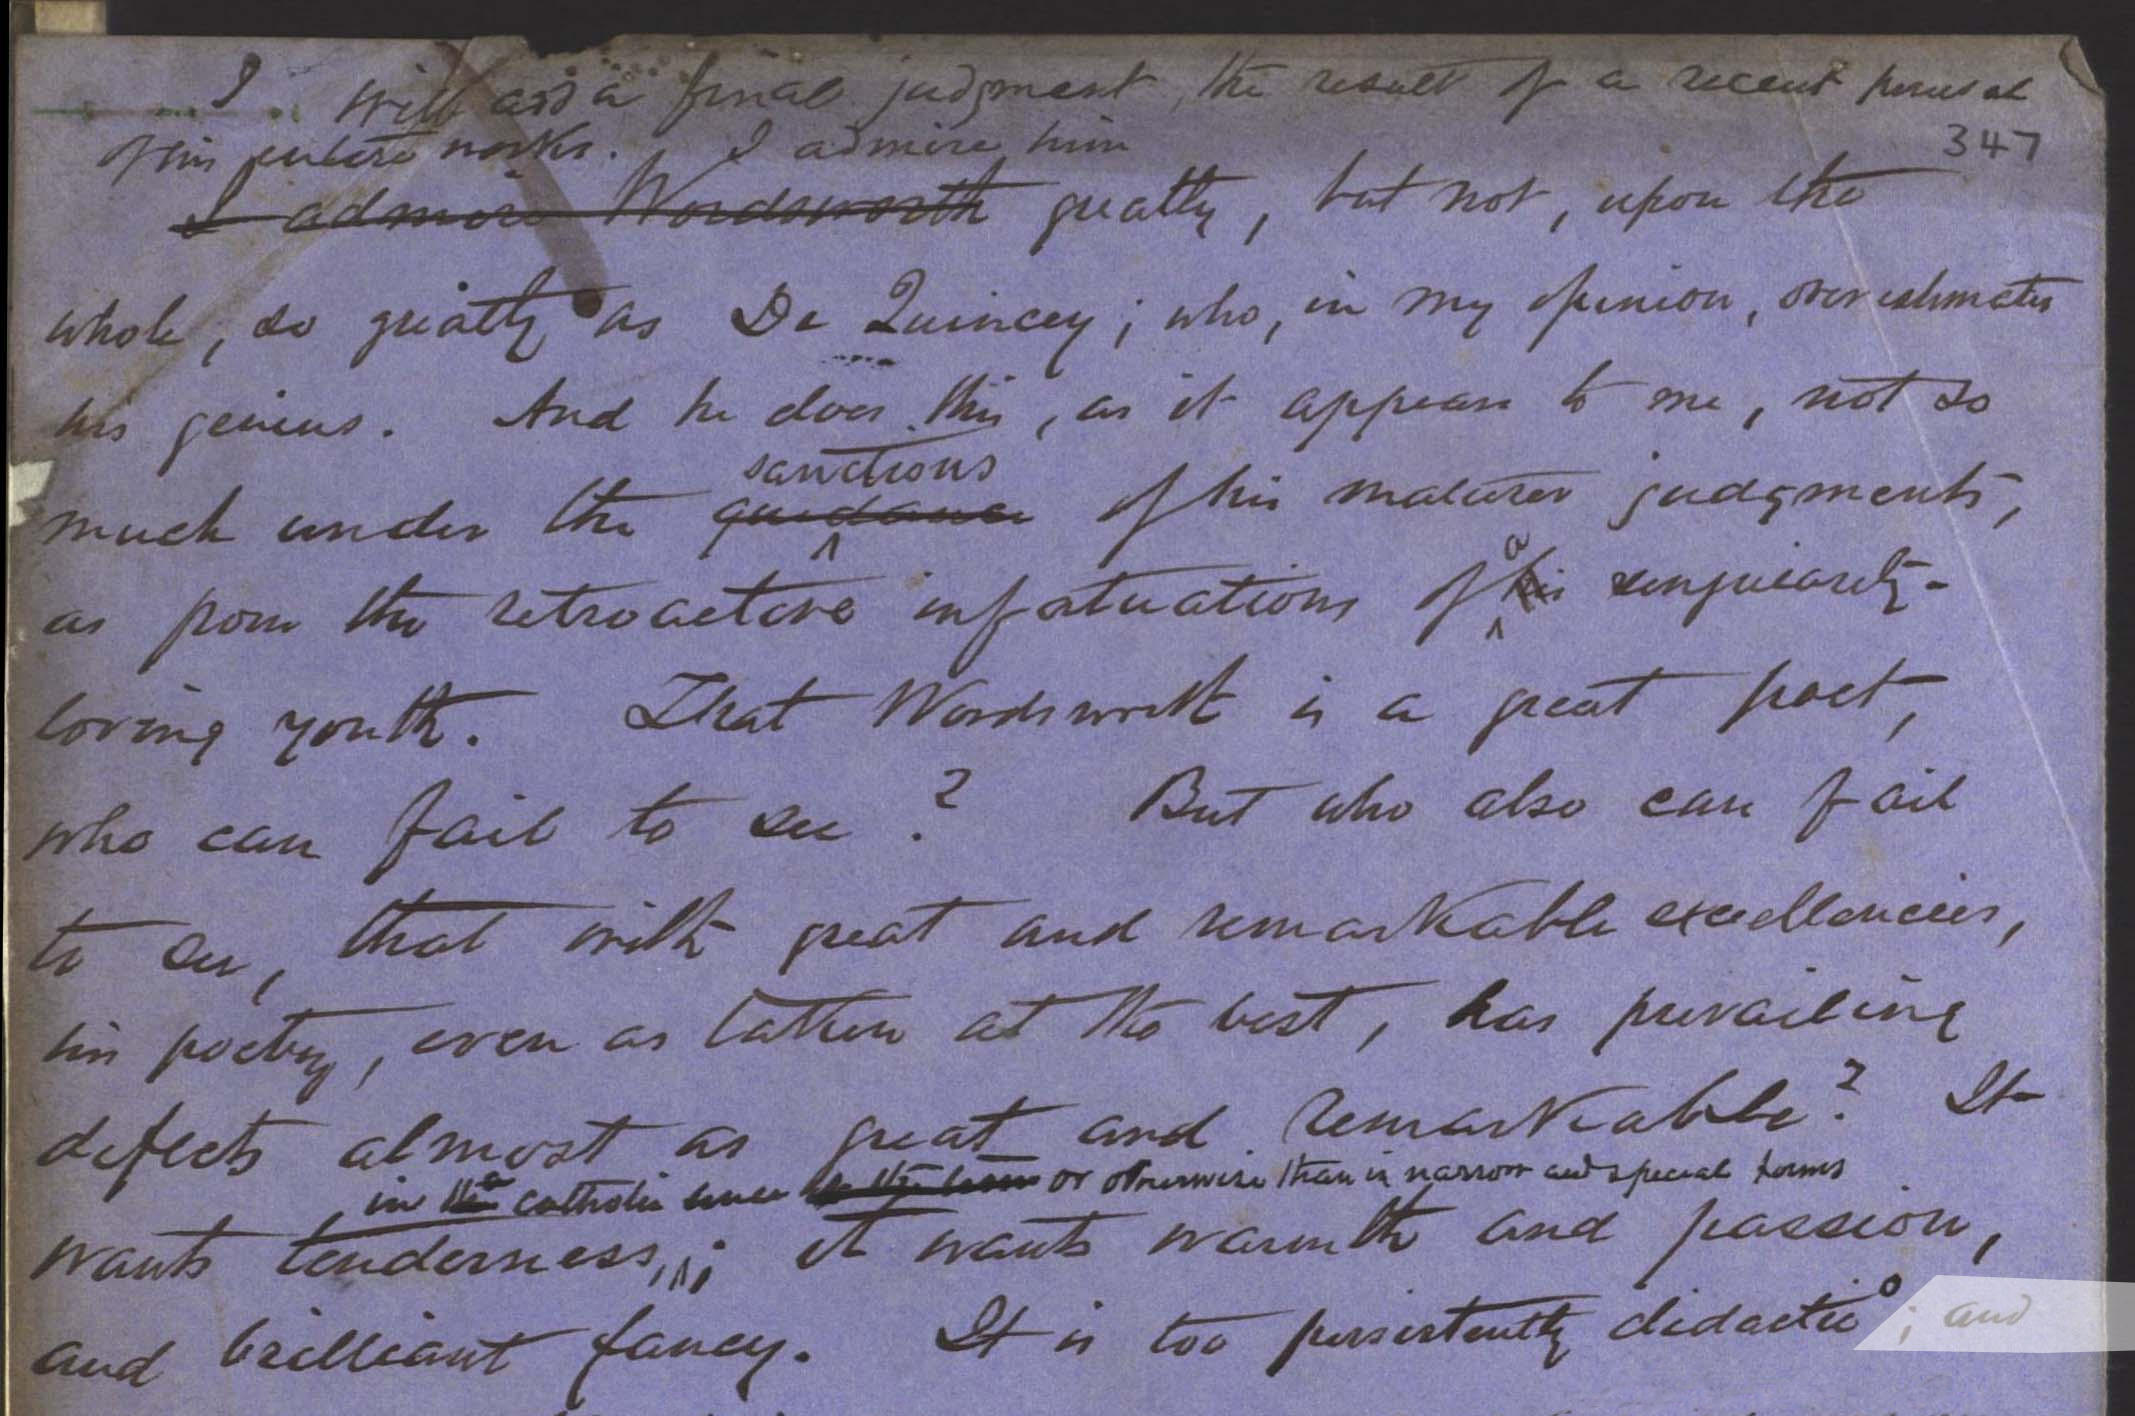 I will add a final judgment, the result of a recent perusal
of his entire works. I admire him
347
I admire Wordsworth greatly, but not, upon the
whole, so greatly as De Quincey; who, in my opinion, overestimates
his genius. And he does this, as it appears to me, not so
sanctions
much under the guidance of his maturer judgments,
a
as from the retroactive infatuations of his singularity-
loving youth. That Wordsworth is a great poet,
who can fail to see? But who also can fail
to see, that with great and remarkable excellencies,
his poetry, even as taken at the best, has prevailing
defects almost as great and remarkable? It
in a catholic sense or otherwise than in narrow and special forms
wants tenderness,; it wants warmth and passion,
and brilliant fancy. It is too persistently didactic; and